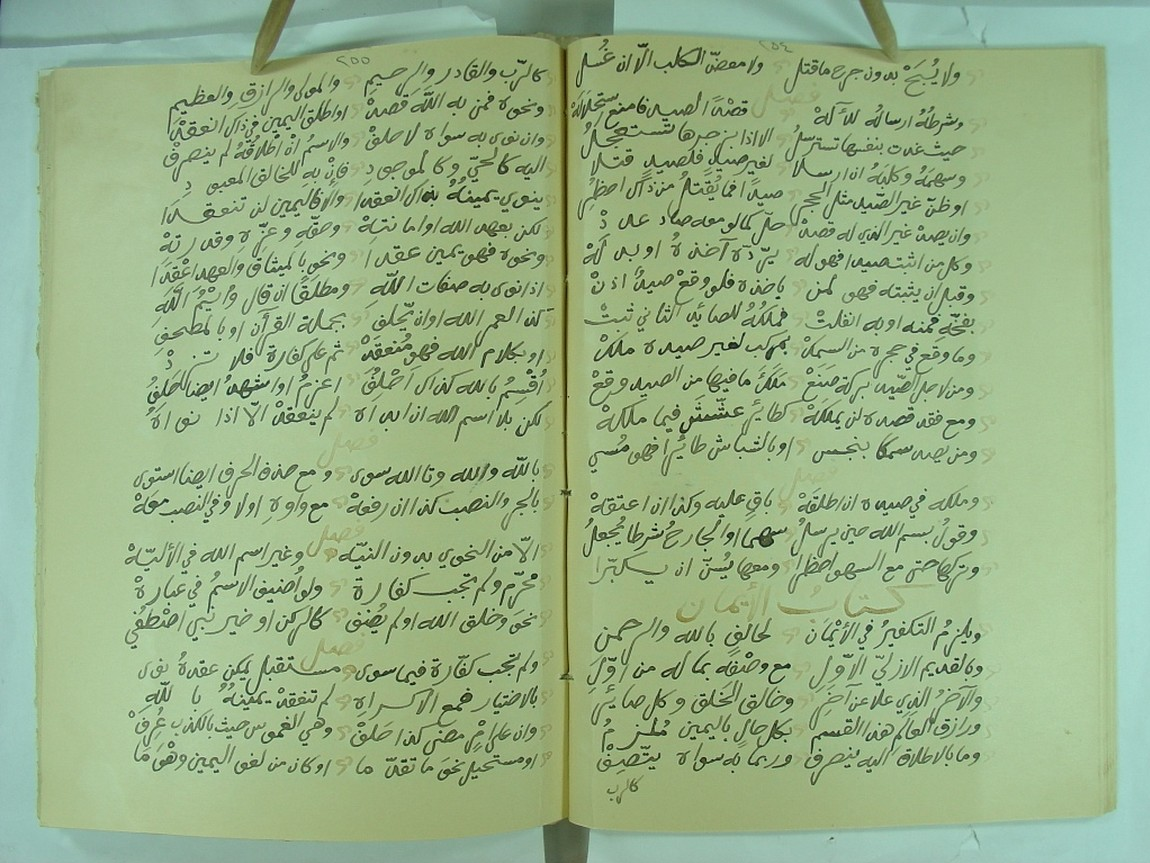 ٢٥٤
ولا يُبَحْ بدون جرح ما قتل ولا معضّ الكلب الّا ان غسل
فصل
وشرطهُ ارساله للآلهْ قصدًا لصيد فامنع
حيث غدت بنفسها تسترسلُ الا اذا بزجرها تستعجلُ
وسهمهُ وكلبهُ ان ارسلا لغير صيدٍ فلصيدٍ قتلا
او ظنّ غير الصّيد مثل الحجرِ صيدًا فما يُقتلُ من ذاك احظُرِ
وان يصد غير الذي له قصدْ حلّ كما لو معه صاد عددْ
وكل من اثبت صيدا فهو له يردّه آخذهُ او بدلهْ
وقبل ان يثبته فهو لمن ياخذه فلو وقع صيدٌ اذنْ
بفخّهِ فمنه او به انفلتْ فملكهُ للصائد الثاني ثبتْ
وما وقع في حجره من السمكْ بمركب لغير صيده ملكْ
ومن لاجل الصّيد بركة صنعْ ملكَ ما فيها من الصيد وقعْ
ومع فقد قصده لن يملكهْ كطائرٍ عشّش فيما ملكهْ
ومن يصد سمكا بنجس او بالشباش طائرا فهو مُسي
فصل
وملكه في صيده ان اطلقهْ باقٍ عليه وكذا ان اعتقهْ
وقولُ بسم الله حين يرسلُ سهما او الجارح شرطا يُجعلُ
وتركها حتى مع السهو احظرا ومعها يُسنّ ان يكبّرا
كتابُ الأيمان
ويلزمُ التكفيرُ في الأيمانِ لحالفٍ بالله والرحمن
وبالقديم الازليّ الاوّلِ مع وصفه بما له من اوّلِ
والآخرُ الذي علا عن اخرِ وخالق الخلق وكل صائرِ
ورازق العالم هذا القسم بكل حال باليمين مُلزمُ
وما بالاطلاق اليه ينصرفْ وربما به سواه يتّصفْ
كالرب
٢٥٥
كالرّب والقادر والرحيم والمولى والرازقِ والعظيم
ونحوه فمن به اللّه قصدْ او اطلق اليمين في ذاك انعقدْ
وان نوى به سواه لا حلفْ والاسمُ ان اطلاقهُ لم ينصرفْ
اليه كالحيّ وكالموجودِ فان به للخالق المعبودِ
ينوي يمينُهُ بذاك انعقدا والا فاليمين لن تنعقدا
لكن بعهد الله او امانتهْ وحقّه وعزّه وقدرتهْ
ونحوه فهو يمين عقدا ونحو بالميثاق والعهد اعقدا
اذا نوى به صفات اللّه ومطلقًا ان قال وأيمُ اللّه
كذا لعمر الله او ان يحلفِ بجملة القرآن او بالمصحفِ
او بكلام الله فهو مُنعقدْ ثم على كفارة فلا تزدْ
أُقسمُ بالله كذاك احلفُ اعزمُ او اشهدُ ايضا الحلفُ
لكن بلا اسم الله ان ابداه لم ينعقدْ الّا اذا نواهُ
فصل
باللّه والله وتا الله سوى ومع حذف الحرف ايضا استوى
بالجر والنصب كذا ان رفعهْ مع واوهِ اولا وفي النصب معهْ
فصل
الّا من النحوي بدون النيّه وغير اسم الله في الأليّهْ
محرّم ولم يجب كفارهْ ولو أُضيف الاسمُ في عبارهْ
نحو وخلق الله او لم يُضفِ كالركن او خير نبي اصطُفي
فصل
ولم تجب كفّارة فيما سوى مستقبل يمكن عقدهُ نوى
بالاختيار فمع الاكراه لم تنعقد يمينُهُ باللّهِ
وان على امرٍ مضى كذا حلفْ وهي الغموس حيث بالكذب عُرفْ
او مستحيل نحو ما تقدّما او كان من لغو اليمين وهْوَ ما